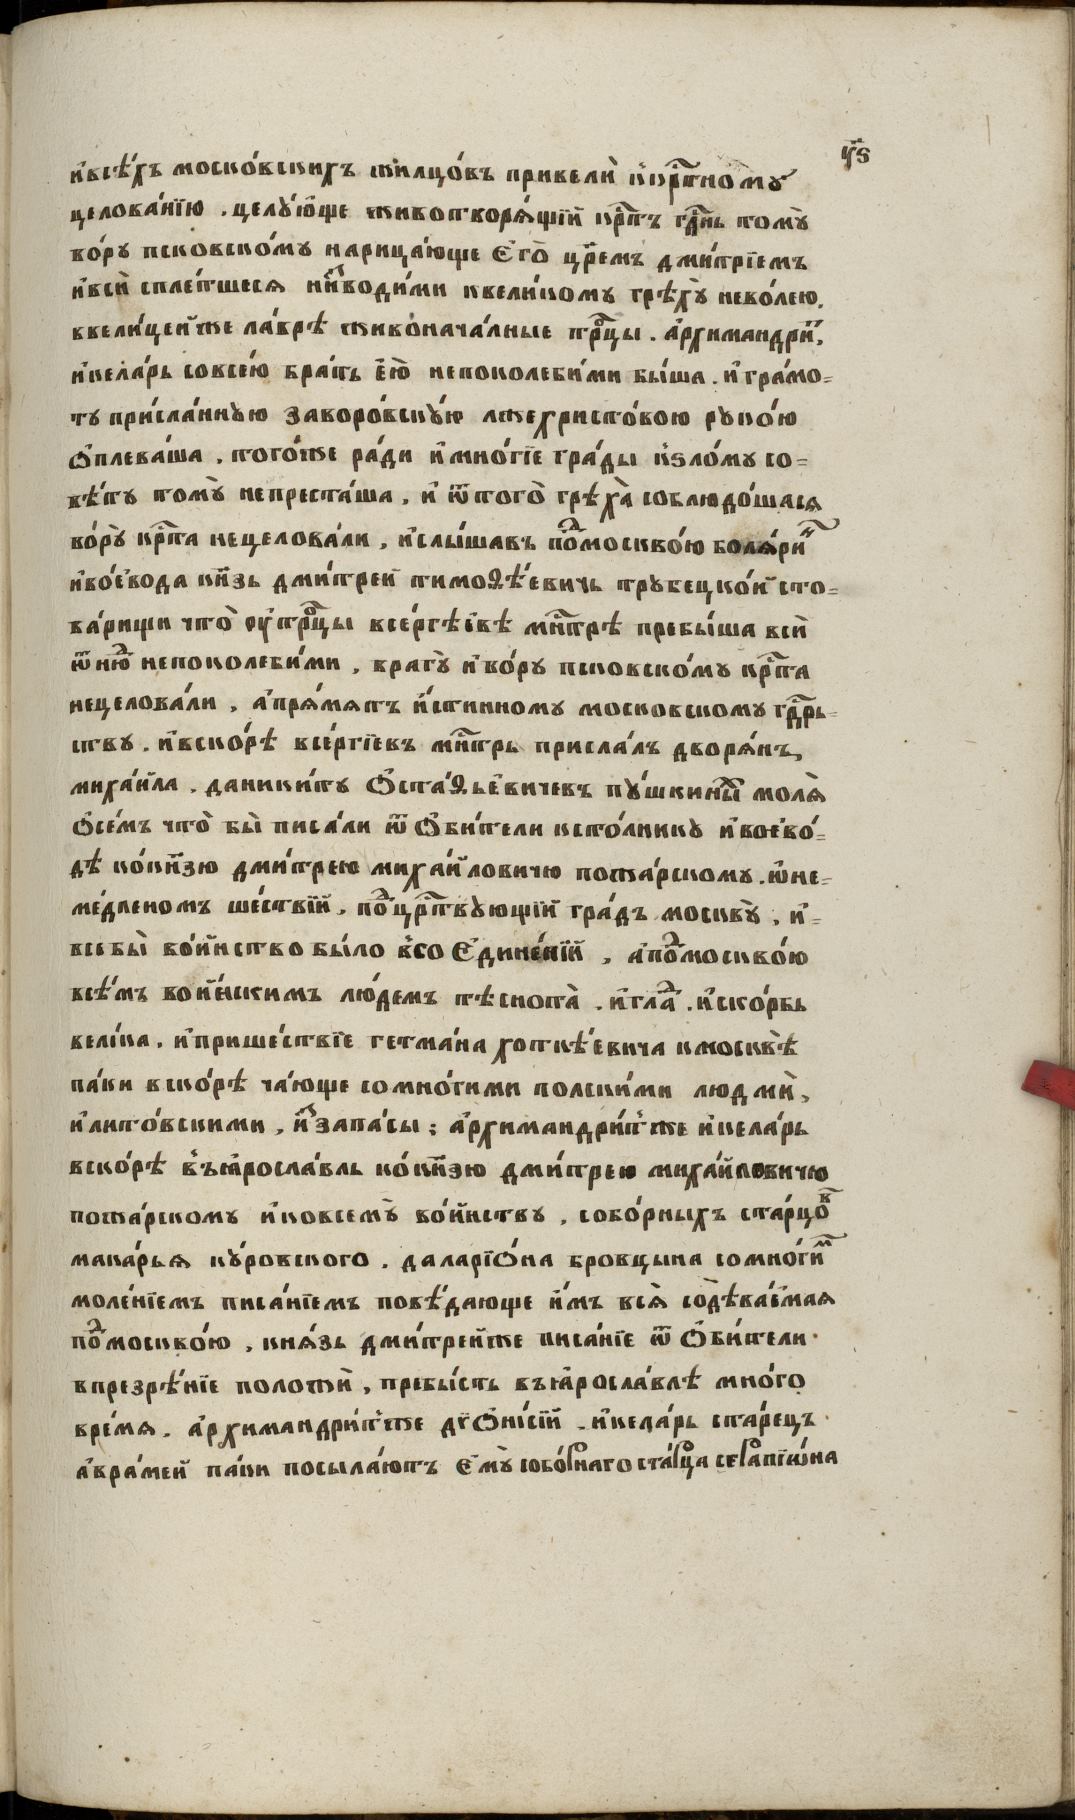 ч҃ѕ
и҆всѣ́хъ моско́вскихъ жилцо́въ привелѝ ккрⷭ҇тномꙋ̀
целова́нїю . целꙋ́ю҆ще животворѧ́щїй крⷭ҇тъ гдⷭ҇нь томꙋ̀
во́рꙋ псковско́мꙋ нарица́юще є҆го̀ цр҃емъ дми́трїемъ
и҆всѝ сплє́тшеся ни́зводи́ми квели́комꙋ грѣхꙋ̀ нево́лею .
ввели́цейже ла́врѣ живонача́лные трⷪ҇цы . а҆рхимандри́тъ ,
и҆кела́рь совсе́ю бра́тьею непоколеби́ми бы́ша . и҆гра́мо-
тꙋ при́сла́ннꙋю заворо́вскꙋ́ю лжехристо́вою рꙋко́ю
ѻ҆плева́ша . того́же ра́ди и҆мно́гїе гра́ды кѕло́мꙋ со-
вѣ́тꙋ томꙋ̀ непреста́ша , и҆ ѿтого̀ грѣха̀ соблюдо́шася
во́рꙋ̀ крⷭ҇та нецелова́ли , и҆слы́шавъ поⷣмоскво́ю боля́риⷩ
и҆воє҆во́да кн҃зь дми́трей тимоѳѣ́евичь трꙋбецко́й сто-
ва́рищи что̀ ᲂу҆трⷪ҇цы всє́ргѣевѣ мн҃трѣ̀ пребы́ша всѝ
ѿнюⷣ непоколеби́ми , врагꙋ̀ и҆во́рꙋ псковско́мꙋ крⷭ҇та
нецелова́ли , а҆прѧ́мятъ и҆́стинномꙋ московскомꙋ гдⷭ҇рь-
ствꙋ . и҆вско́рѣ всє́ргїевъ мн҃трь присла́лъ дворя́нъ ,
миха́йла . даники́тꙋ ѻ҆ста́ѳьевичевъ пꙋ́шкиныⷯ моля̀
ѻ҆се́мъ что̀ бы̀ писа́ли ѿ ѻ҆би́тели ксто́лникꙋ и҆воєво́-
дѣ ко́кн҃зю дми́трею миха́йловичю пожа́рскомꙋ . ѡ҆не-
ме́дленомъ ше́ствїй . поⷣцрⷭ҇твꙋющїй гра́дъ москвꙋ̀ , и҆-
всебы̀ во́йнство бы́ло всоє҆дине́нїй , а҆поⷣмоскво́ю
всѣ́мъ во́йнскимъ лю́демъ тѣснота̀ . и҆глаⷣ . и҆ско́рбь
вели́ка . и҆прише́ствїе гетма́на хоткѣ́евича кмосквѣ̀
па́ки вско́рѣ ча́юще сомно́гими полски́ми людмѝ ,
и҆лито́вскими , и҆ззапа́сы ; а҆рхимандри́тже и҆кела́рь
вско́рѣ въꙗ҆росла́вль ко́кн҃зю дми́трею миха́йловичю
пожа́рскомꙋ и҆ковсемꙋ̀ во́йнствꙋ , собо́рныхъ ста́рцоⷡ
мака́рья кꙋ́ровского . даларїѻ́на бровцына сомно́гиⷨ
моле́нїемъ писа́нїемъ повѣ́дающе и҆́мъ вся̀ содѣва́емая
поⷣмоскво́ю , кня́зь дми́трейже писа́нїе ѿ ѻ҆би́тели
впрезрѣ́нїе положѝ , пребы́сть въꙗ҆росла́влѣ мно́го
вре́мя . а҆рхимандри́тже дїѻни́сїй . и҆кела́рь ста́рецъ
а҆вра́мей па́ки посыла́ютъ є҆мꙋ̀ собо́рнаго ста́рца серапїѡ́на